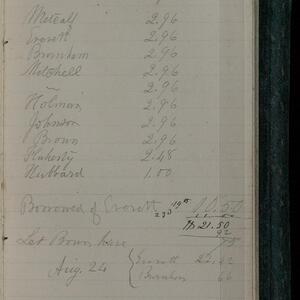 Metcalf 2.96
Everett 2.96
Burnham 2.96
Mitchell 2.96
~ 2.96
Holman 2.96
Johnson 2.96
Brown 2.96
Flaherty 2.48
Hubbard 1.00
Borrowed of Everett 19th 10.50
23d 11.00
21.50
92
Let Burn have 75
Aug. 24 { Everett 22.42
Burnham 66